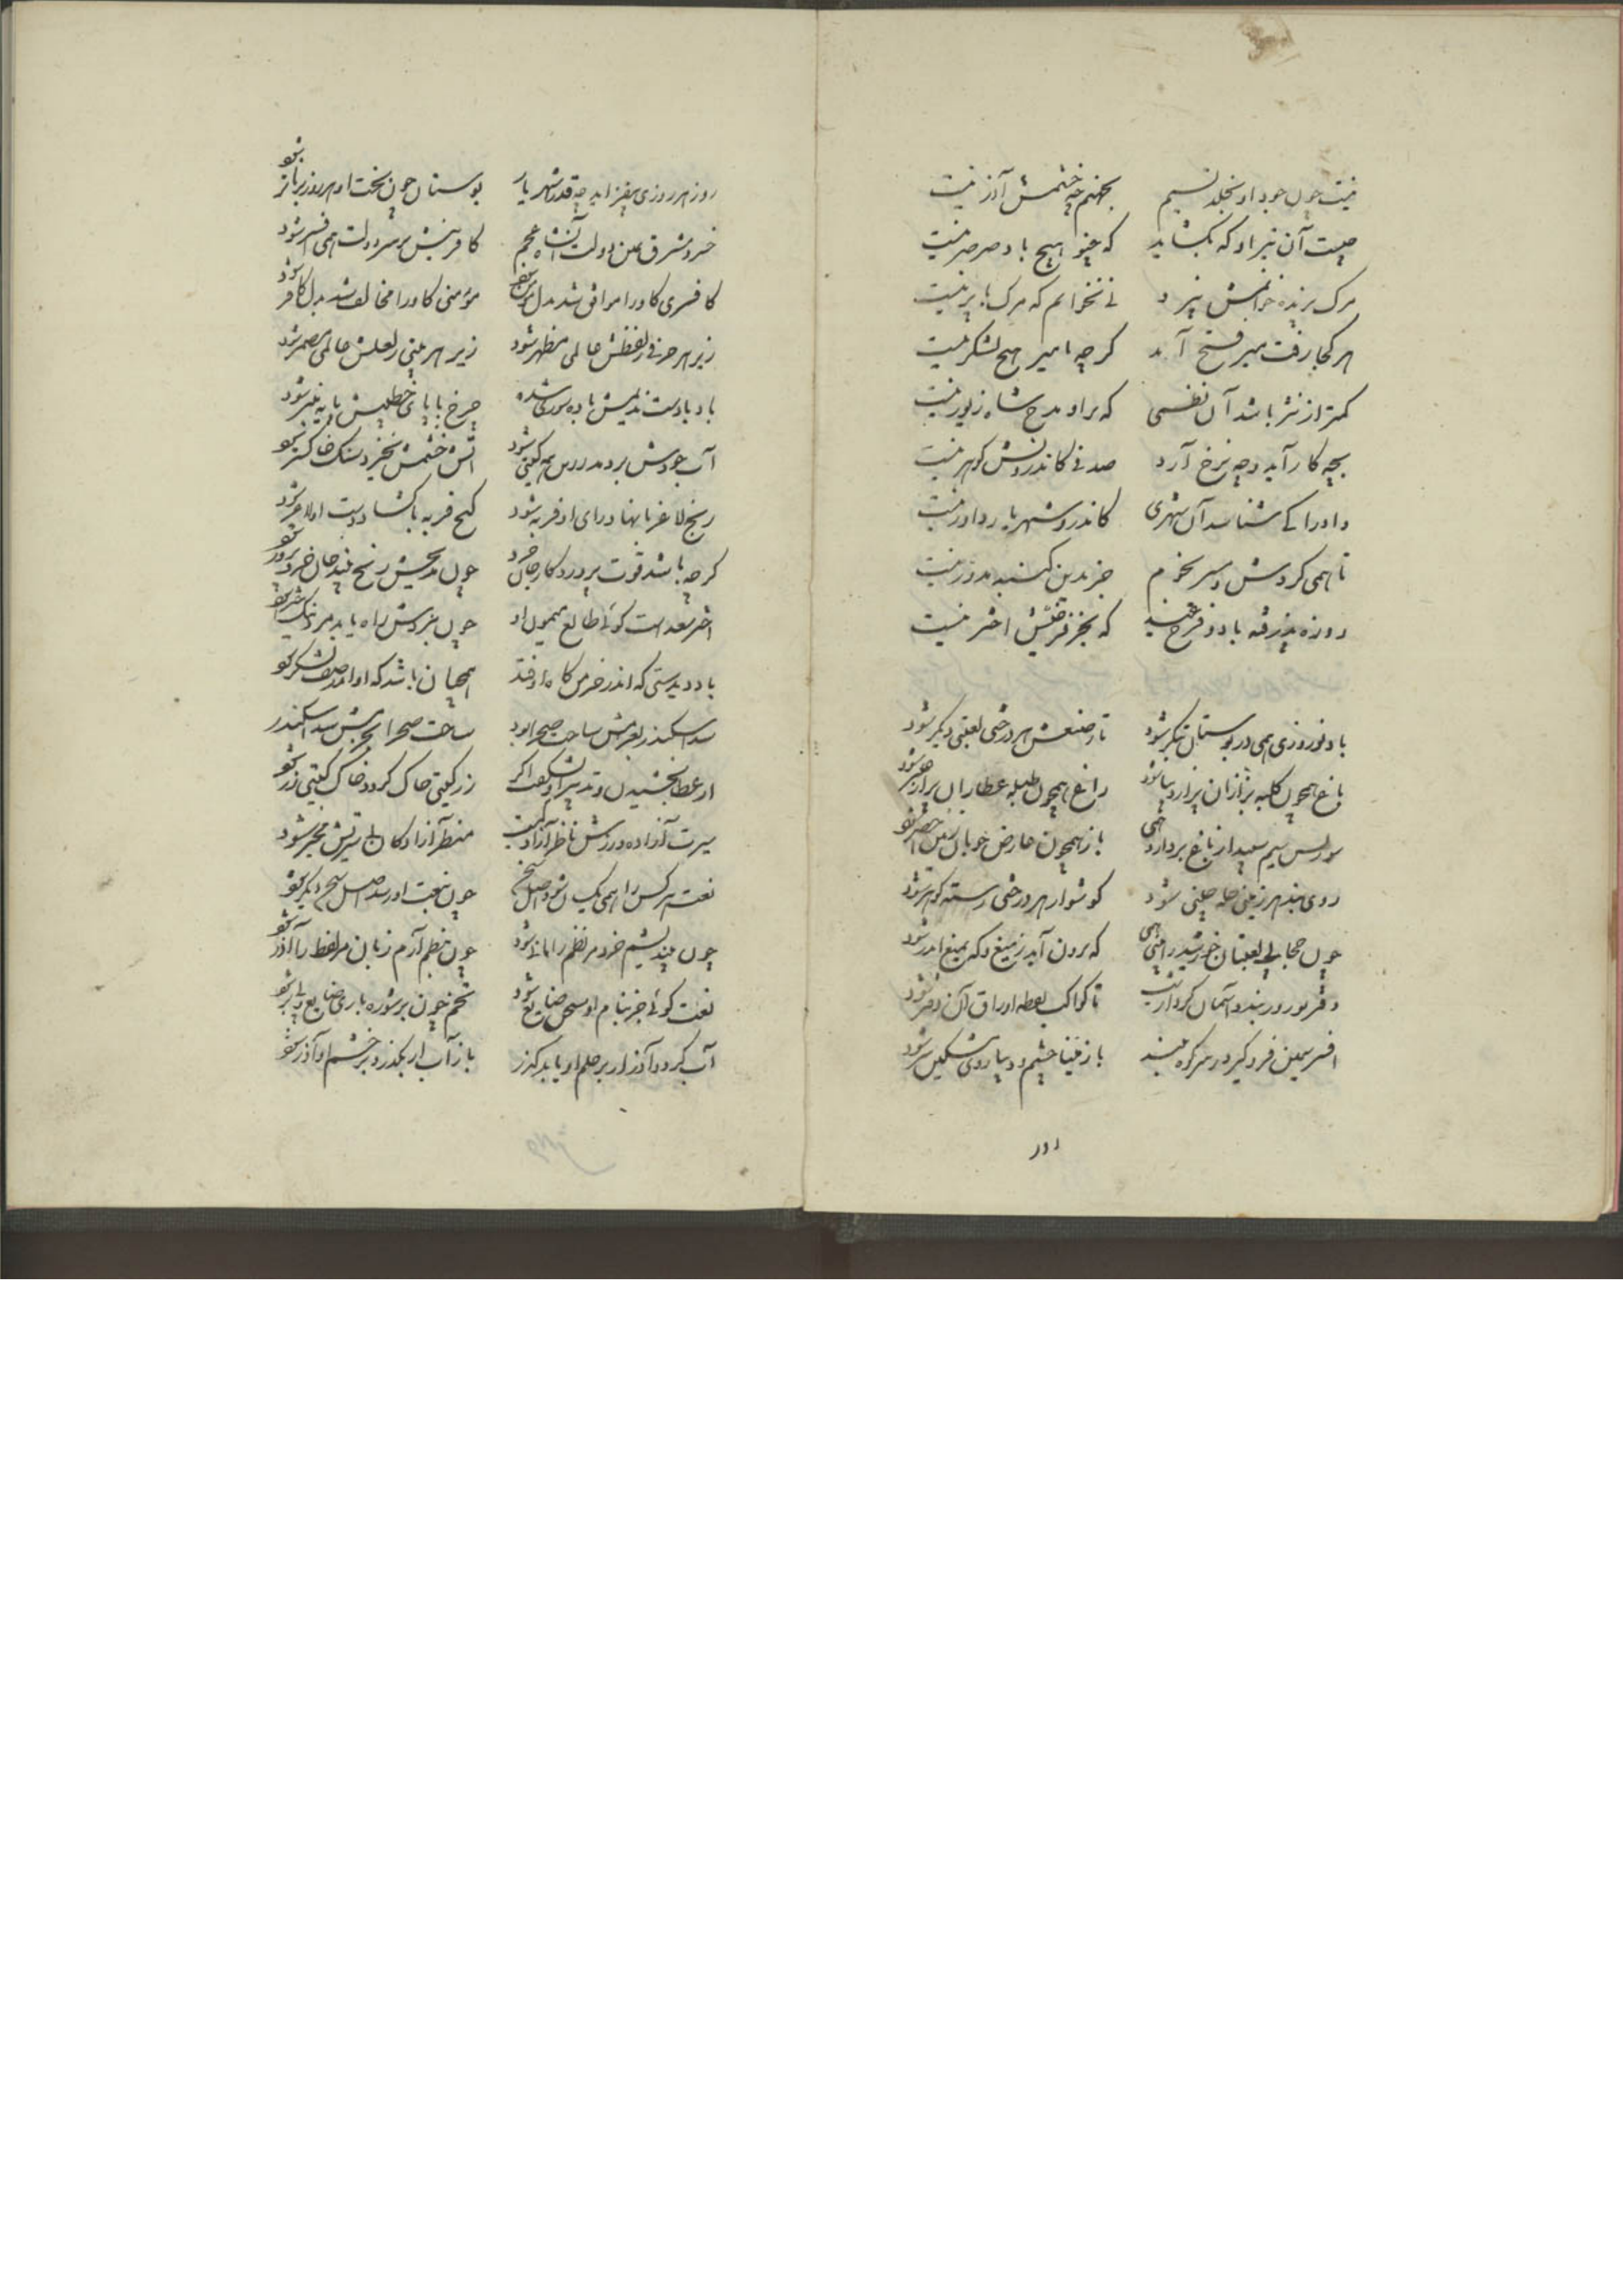 نیست چون جود او بخلد نسیم بجهنم چه خشمش آذر نیست
چیست آن تیر او که بگشاید که عنو هیچ باد صرصر نیست
مرک پرنده خوانمش نپرد نی نخوانم که مرک را پر نیست
هر کجا رفت میر فتح آمد کرچه با میر هیچ لشکر نیست
کمتر از نثر باشد آن نظمی که براو مدح شاه زیور نیست
بچه کار آید و چه نرخ آرد صدفی کاندرونش کوهر نیست
داد را کی شناسد آن شهری کاندرو شهریار داور نیست
تا همی کردش سپهر نجوم جز بدین کنبد مدور نیست
روزه پذرفته باد و فرخ عید که بجز فرخیش اختر نیست
باد نوروزی همی در بوستان بتکر شود تا ز صنعش هر درختی لعبتی دیکر شود
باغ همچون کلبه بزازان پر از دیبا شود راغ همچون طبله عطاران پر از عنبر شود
سونس سیم سپید از باغ بردارد همی باز همچون عارض خوبان زمین اخضر شود
روی بند هر زمینی حله چینی شود کوشوار هر درختی رسته کوهر شود
چون حجابی لعبتان خورشید را بینی همی که برون آید ز میغ و که بمیغ اندر شود
دفتر نوروز بندد آسمان کردار شب تا کواکب نقطه اوراق آن دفتر شود
افسر سیمین فرو کیرد ز سر کوه بلند باز مینا چشم و دیبا روی و مشکین سر شود
روز
روز هر روزی بیفزاید چه قدر شهریار بوستان چون بخت او هر روز برناتر شود
خسرو مشرق یمین دولت آن شاه عجم کافرینش بر سر دولت همی افسر شود
کافری کاو را موافق شد بدل مؤمن شود مؤمنی کاو را مخالف شد بدل کافر شود
زیر هر حرفی ز لفظش عالمی مظهر شود زیر هر بیتی ز لعلش عالمی مضمر شود
باد بادست ندیمش باده سوری شده چرخ با پای خطیبش پایه منبر شود
آب جودش بردمد زرین همه کیتی شود آتش خشمش بخیزد سنک خاکستر شود
رنج لاغر با بها و رای او فربه شود کنج فربه با کشاد دست او لاغر شود
کرچه باشد قوت پروردکار جان خرد چون مدیحش رنج بیند جان خردپرور شود
اختر سعد است کوئی طالع میمون او چون بنزدش راه یابد مرد نیک اختر شود
باد دیدستی که اندر خرمن کاه اوفتد همچنان باشد که او اندر صف لشکر شود
سد اسکندر بعزمش ساحت صحرا بود ساحت صحرا بحزمش سد اسکندر شود
از عطا بخشیدن و تدبیر او نشکفت اکر زر کیتی خاک کردد خاک کیتی زر شود
سیرت آزاده ورزش ناظر آزادکیست منظر آزادکان لابد ترش مخبر شود
نعت هر کس را همی یک اصل شود چون بنعت او رسد اصل سخن دیکر شود
چون بیندیشم خرد مر نظم را مانی شود چون بنظم آرم زبان مر لفظ را آذر شود
نعت کوئی جز بنام او سخن ضایع شود تخم چون بر شوره باری ضایع و بی بر شود
آب کردد آذر ار بر حلم او یابد کذر باز آب ار بکذرد بر خشم او آذر شود